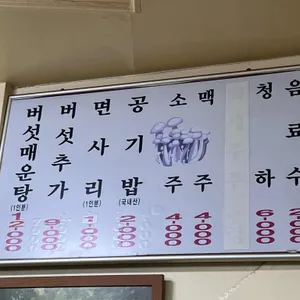 버섯매운탕
(1인분)
버섯추가
면사리
(1인분)
공기밥
(국내산)
소주
4000
맥주
4000
청하
6000
음료수
2000